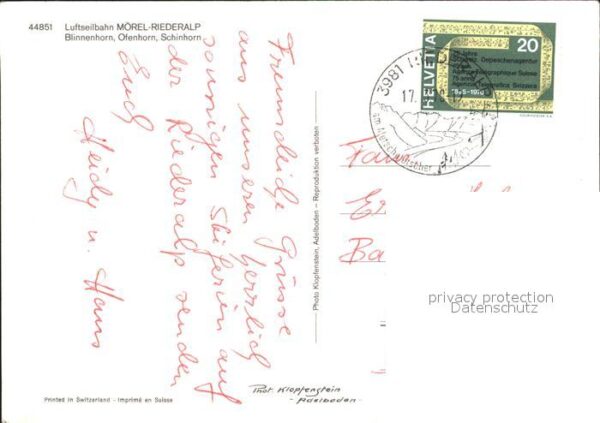 44851 Luftseilbahn MÖREL-RIEDERALP
Blinnenhorn, Ofenhorn, Schinhorn
Freundliche Grüsse
aus unseren herrlich
sonnigen Skiferien auf
der Riederalp senden
Euch
Heidy u. Hans
Photo Klopfenstein, Adelboden - Reproduktion verboten
Printed in Switzerland - Imprimé en Suisse
Phot. Klopfenstein
- Adelboden -
3981
17.
am Aletschgletscher
HELVETIA
20
Schweiz. Depeschenagentur
Agence Télégraphique Suisse
75 anni
Agenzia Telegrafica Svizzera
Fam
Ba
privacy protection
Datenschutz